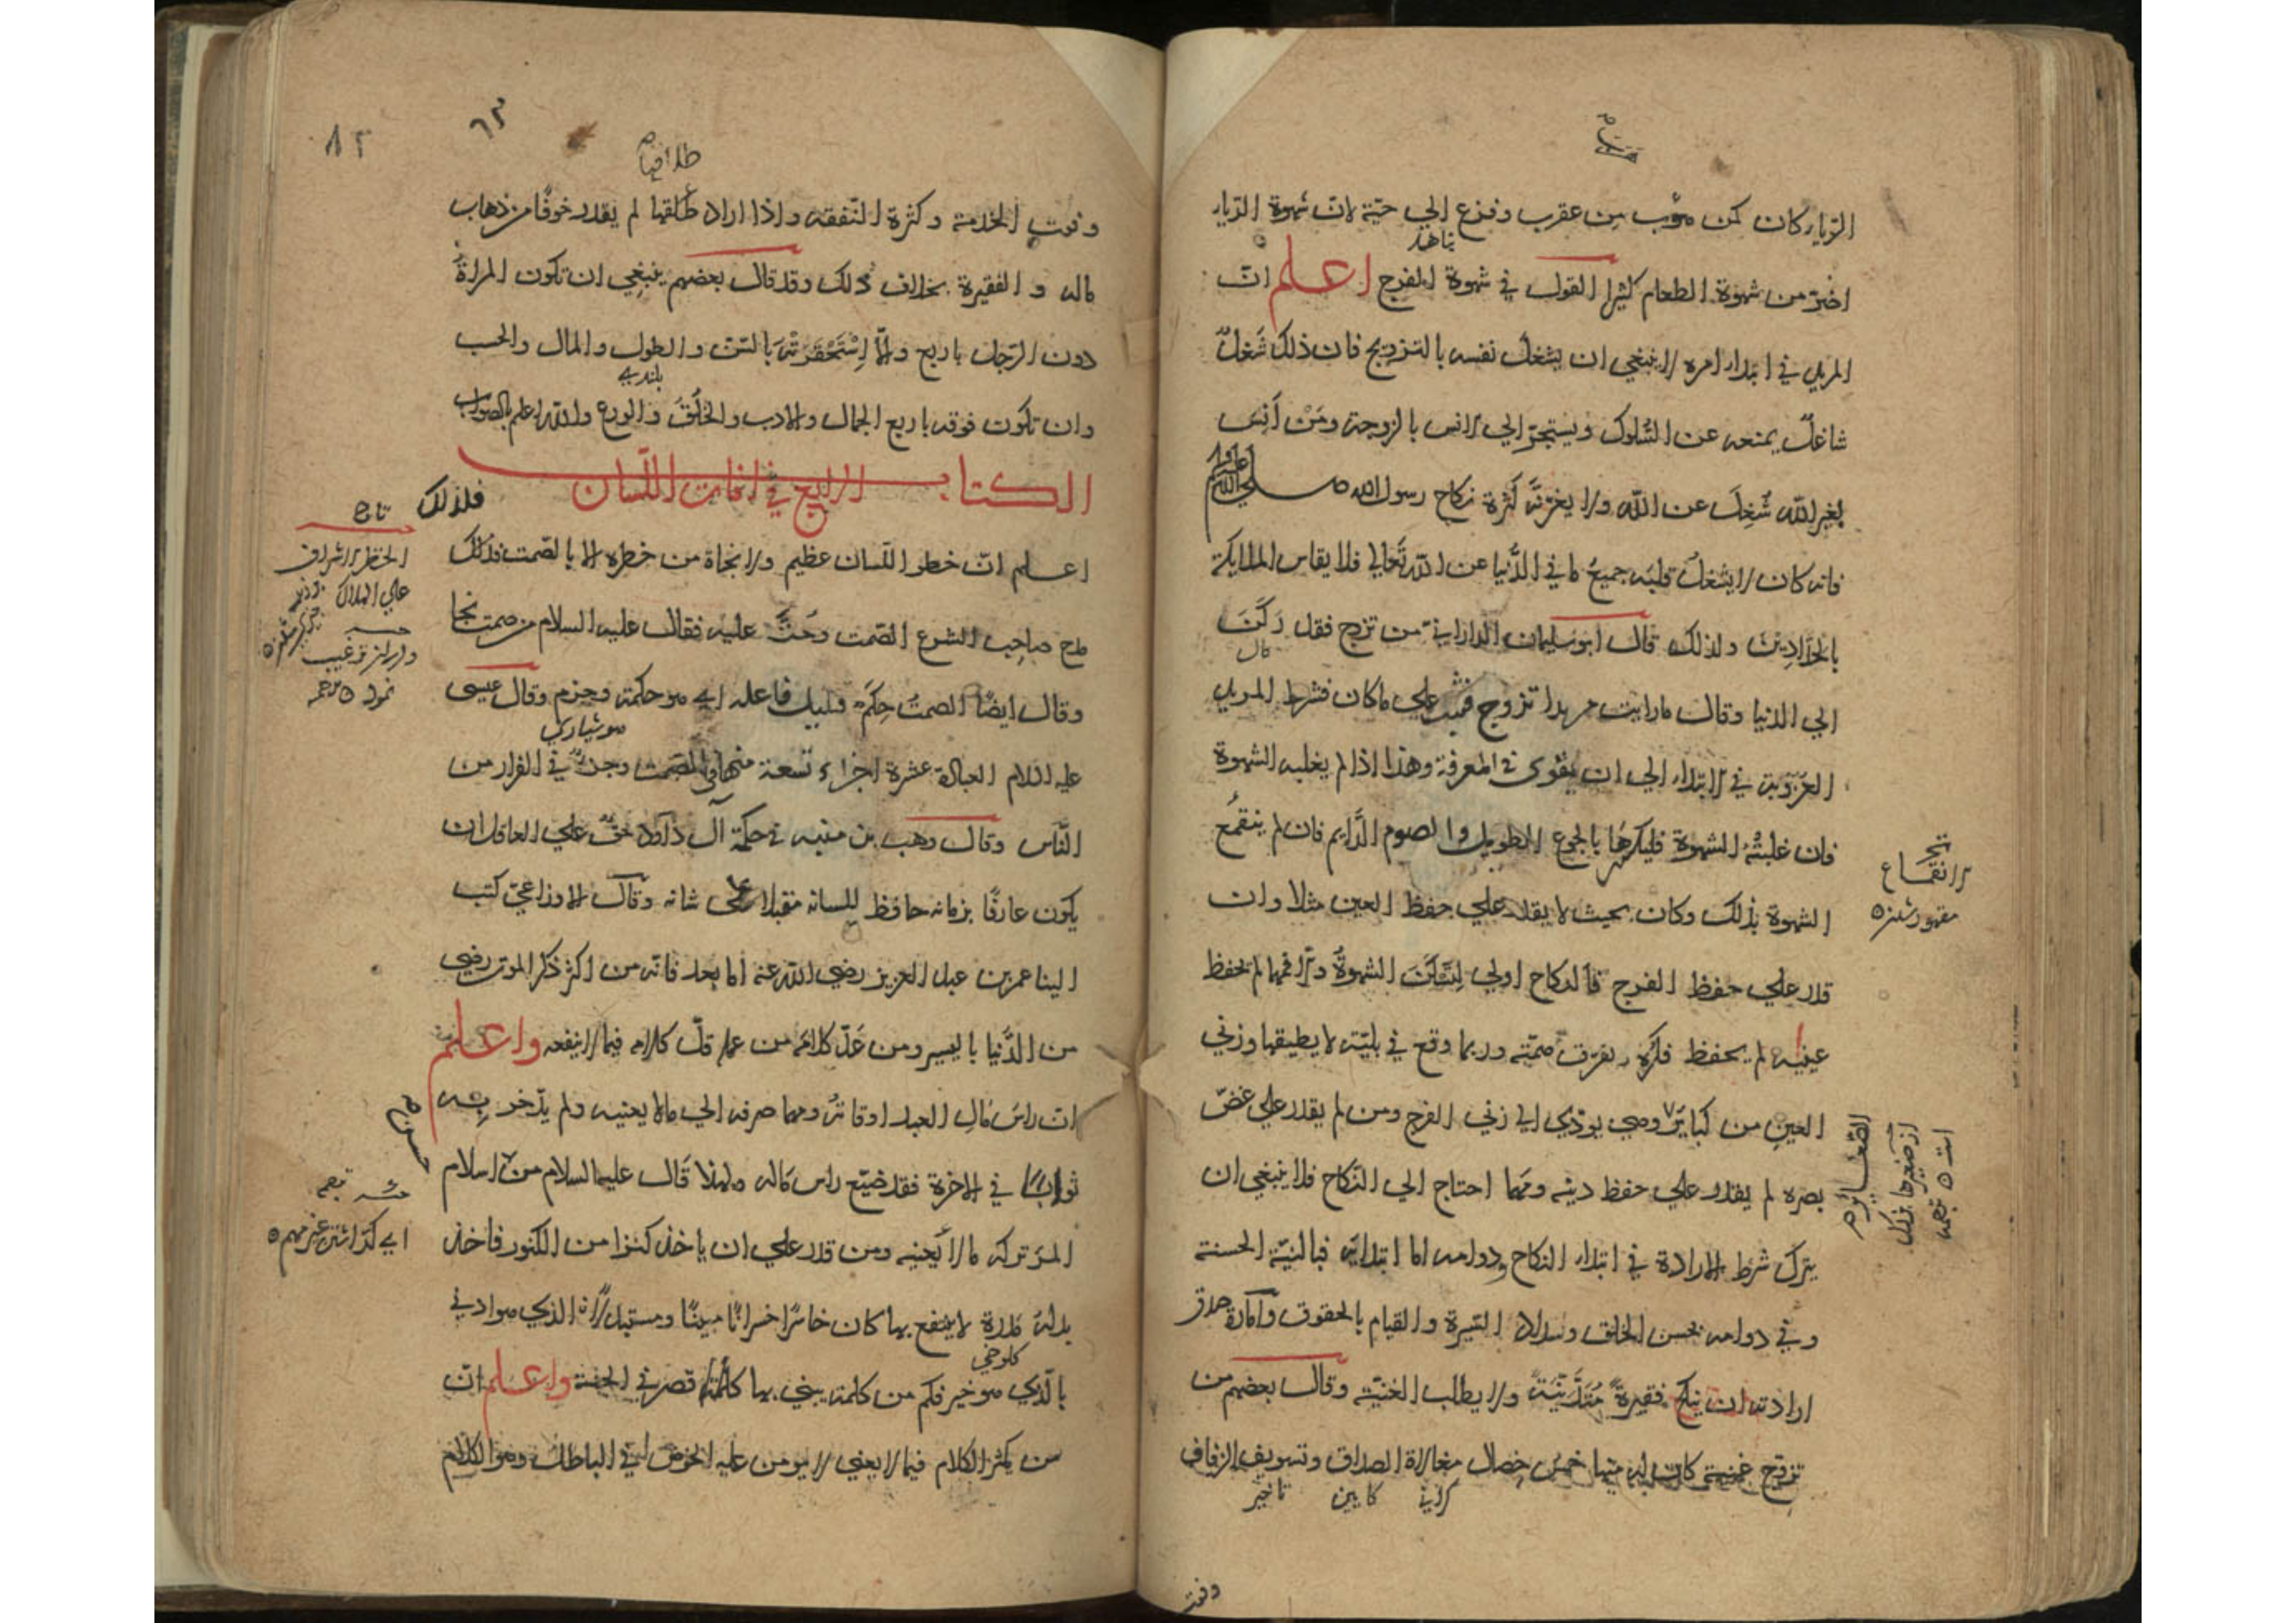 الرياء كان كمن هرب من عقرب وفزع الي حيّة لانّ شهوة الرياء
اضرّ من شهوة الطعام كثيرا القول في شهوة الفرج اعلم انّ
المريد في ابتداء امره لا ينبغي ان يشغل نفسه بالتزويج فان ذلك شغلٌ
شاغلٌ يمنعه عن السّلوك ويستجرّ الي الانس بالزوجة ومَنْ اَنِسَ
بغير الله شُغِلَ عن الله ولا يغرّنّه كثرة نكاح رسول الله صلى الله عليه
فانه كان لا يشغلُ قلبَه جميعُ ما في الدُّنيا عن الله تعالي فلا يقاس الملايكة
بالحدّادين ولذلك قال ابو سليمان الداراني من تزوج فقد رَكَنَ
الي الدنيا وقال ما رايت مريدا تزوج فثبت علي ما كان فشرط المريد
العزوبة في الابتداء الي ان يقوى في المعرفة وهذا اذا لم يغلبه الشهوة
فان غلبتْهُ الشهوة فليكسرها بالجوع الطويل والصوم الدَّايم فان لم ينقمع
الشهوة بذلك وكان بحيث لا يقدر علي حفظ العين مثلا وان
قدر علي حفظ الفرج فالنكاح اولي لتسكن الشهوةُ والا فمهما لم يحفظ
عينيه لم يحفظ فكره ويفرق همّته وربما وقع في بليّة لا يطيقها وزني
العين من كباير وهي يودّي الي زني الفرج ومن لم يقدر علي غضّ
بصره لم يقدر علي حفظ دينه ومهما احتاج الي النّكاح فلا ينبغي ان
يترك شرط الارادة في ابتداء النكاح ودوامه اما ابتدايه فبالنيّة الحسنة
وفي دوامه بحسن الخلق وسداد السّيرة والقيام بالحقوق وامارة صدق
ارادته ان ينكح فقيرةً مُتدَيّنةً ولا يطلب الغنيّة وقال بعضهم من
تزوّج غنيّة كان له منها خمس خصال مغالاة الصداق وتسويف الزفاف
كابين تاخير
الانقماع
مقهور شدن
وفوت
وفوت الخدمة وكثرة النّفقه واذا اراد طلاقها لم يقدر خوفًا من ذهاب
ماله و الفقيرة بخلاف ذلك وقد قال بعضهم ينبغي ان تكون المراةُ
دون الرّجل باربع والاّ اِسْتَحْقَرَتْهُ بالسّن والطول والمال والحسب
وان تكون فوقه باربع الجمال والادب والخُلقُ والورع والله اعلم بالصواب
الكتاب الرابع في افات اللسان
اعلم انّ خطر اللّسان عظيم ولا نجاة من خطره الا بالصّمت فلذلك
مدح صاحب الشرع الصّمت وحَثَّ عليه فقال عليه السلام من صمت نجا
وقال ايضًا الصمتُ حِكَمٌ وقليل فاعله اي هو حكمة وحزم وقال عيسى
عليه السلام العبادة عشرة اجزاء تسعة منها في الصّمت وجزءٌ في الفرار من
النّاس وقال وهب بن منبه في حكمة آل داود حقٌّ علي العاقل ان
يكون عارفًا بزمانه حافظ للسانه مقبلا على شانه وقال الاوزاعيّ كتب
الينا عمر بن عبد العزيز رضي الله عنه اما بعد فانّه من اكثر ذكر الموت رضي
من الدُّنيا باليسير ومن عَدّ كلامه من عمله قلّ كلامه فيما لا ينفعه واعلم
ان راسَ مال العبد اوقاتُه ومهما صرفه الي ما لا يعنيه ولم يدّخر به
ثوابًا في الاخرة فقد ضيّع راس ماله ولهذا قال عليه السلام من اسلام
المرء تركه ما لا يعنيه ومن قدر علي ان ياخذ كنزا من الكنوز فاخذ
بدله مدرة لا ينتفع بها كان خاسرًا خسرانًا مبينًا ومستبدلاً الذي هو ادني
بالّذي هو خير فكم من كلمة يبني بها قصر في الجنة واعلم انّ
من يكثر الكلام فيما لا يعني لا يومن عليه الخوض في الباطل وهو الكلام